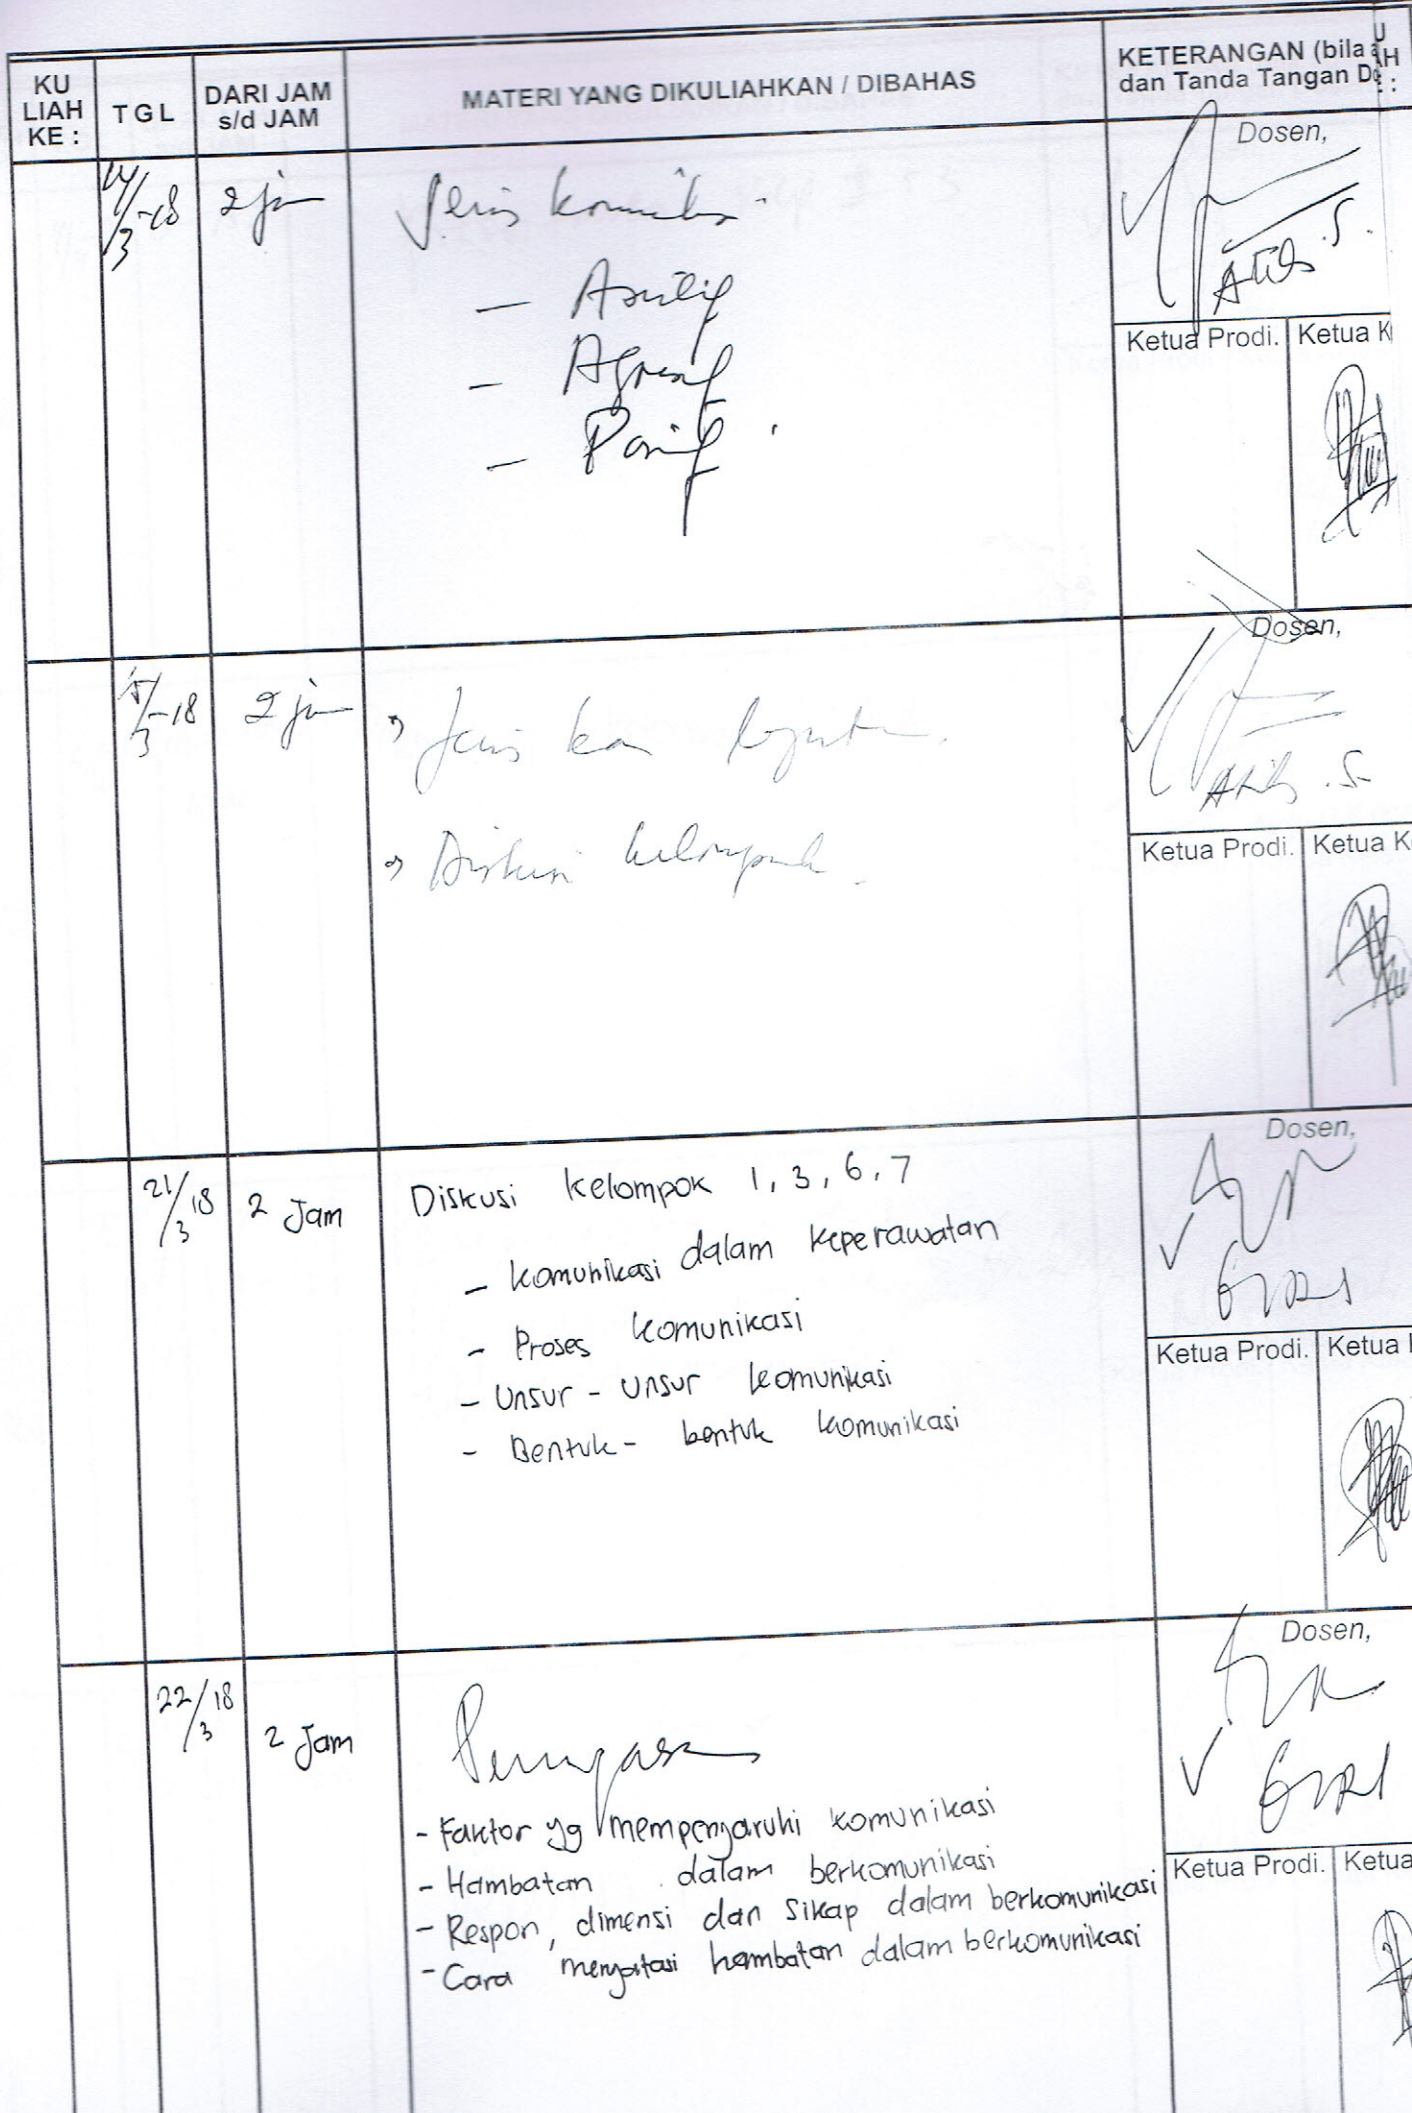 KU
LIAH
KE :
T G L
DARI JAM
s/d JAM
MATERI YANG DIKULIAHKAN / DIBAHAS
KETERANGAN (bila a
dan Tanda Tangan Do
U
AH
:
14/3-18
2 jam
Jenis komunikasi.
- Asertif
- Agresif
- Pasif
Dosen,
Ketua Prodi.
Ketua K
15/3-18
2 jam
Jenis kom
Diskusi kelompok.
Dosen,
Ketua Prodi.
Ketua K
21/3 18
2 Jam
Diskusi kelompok 1, 3, 6, 7
- Komunikasi dalam keperawatan
- Proses komunikasi
- Unsur - unsur komunikasi
- Bentuk - bentuk komunikasi
Dosen,
GIRI
Ketua Prodi.
Ketua
22/3 18
2 Jam
Penugasan
- Faktor yg mempengaruhi komunikasi
- Hambatan dalam berkomunikasi
- Respon, dimensi dan sikap dalam berkomunikasi
- Cara mengatasi hambatan dalam berkomunikasi
Dosen,
GIRI
Ketua Prodi.
Ketua